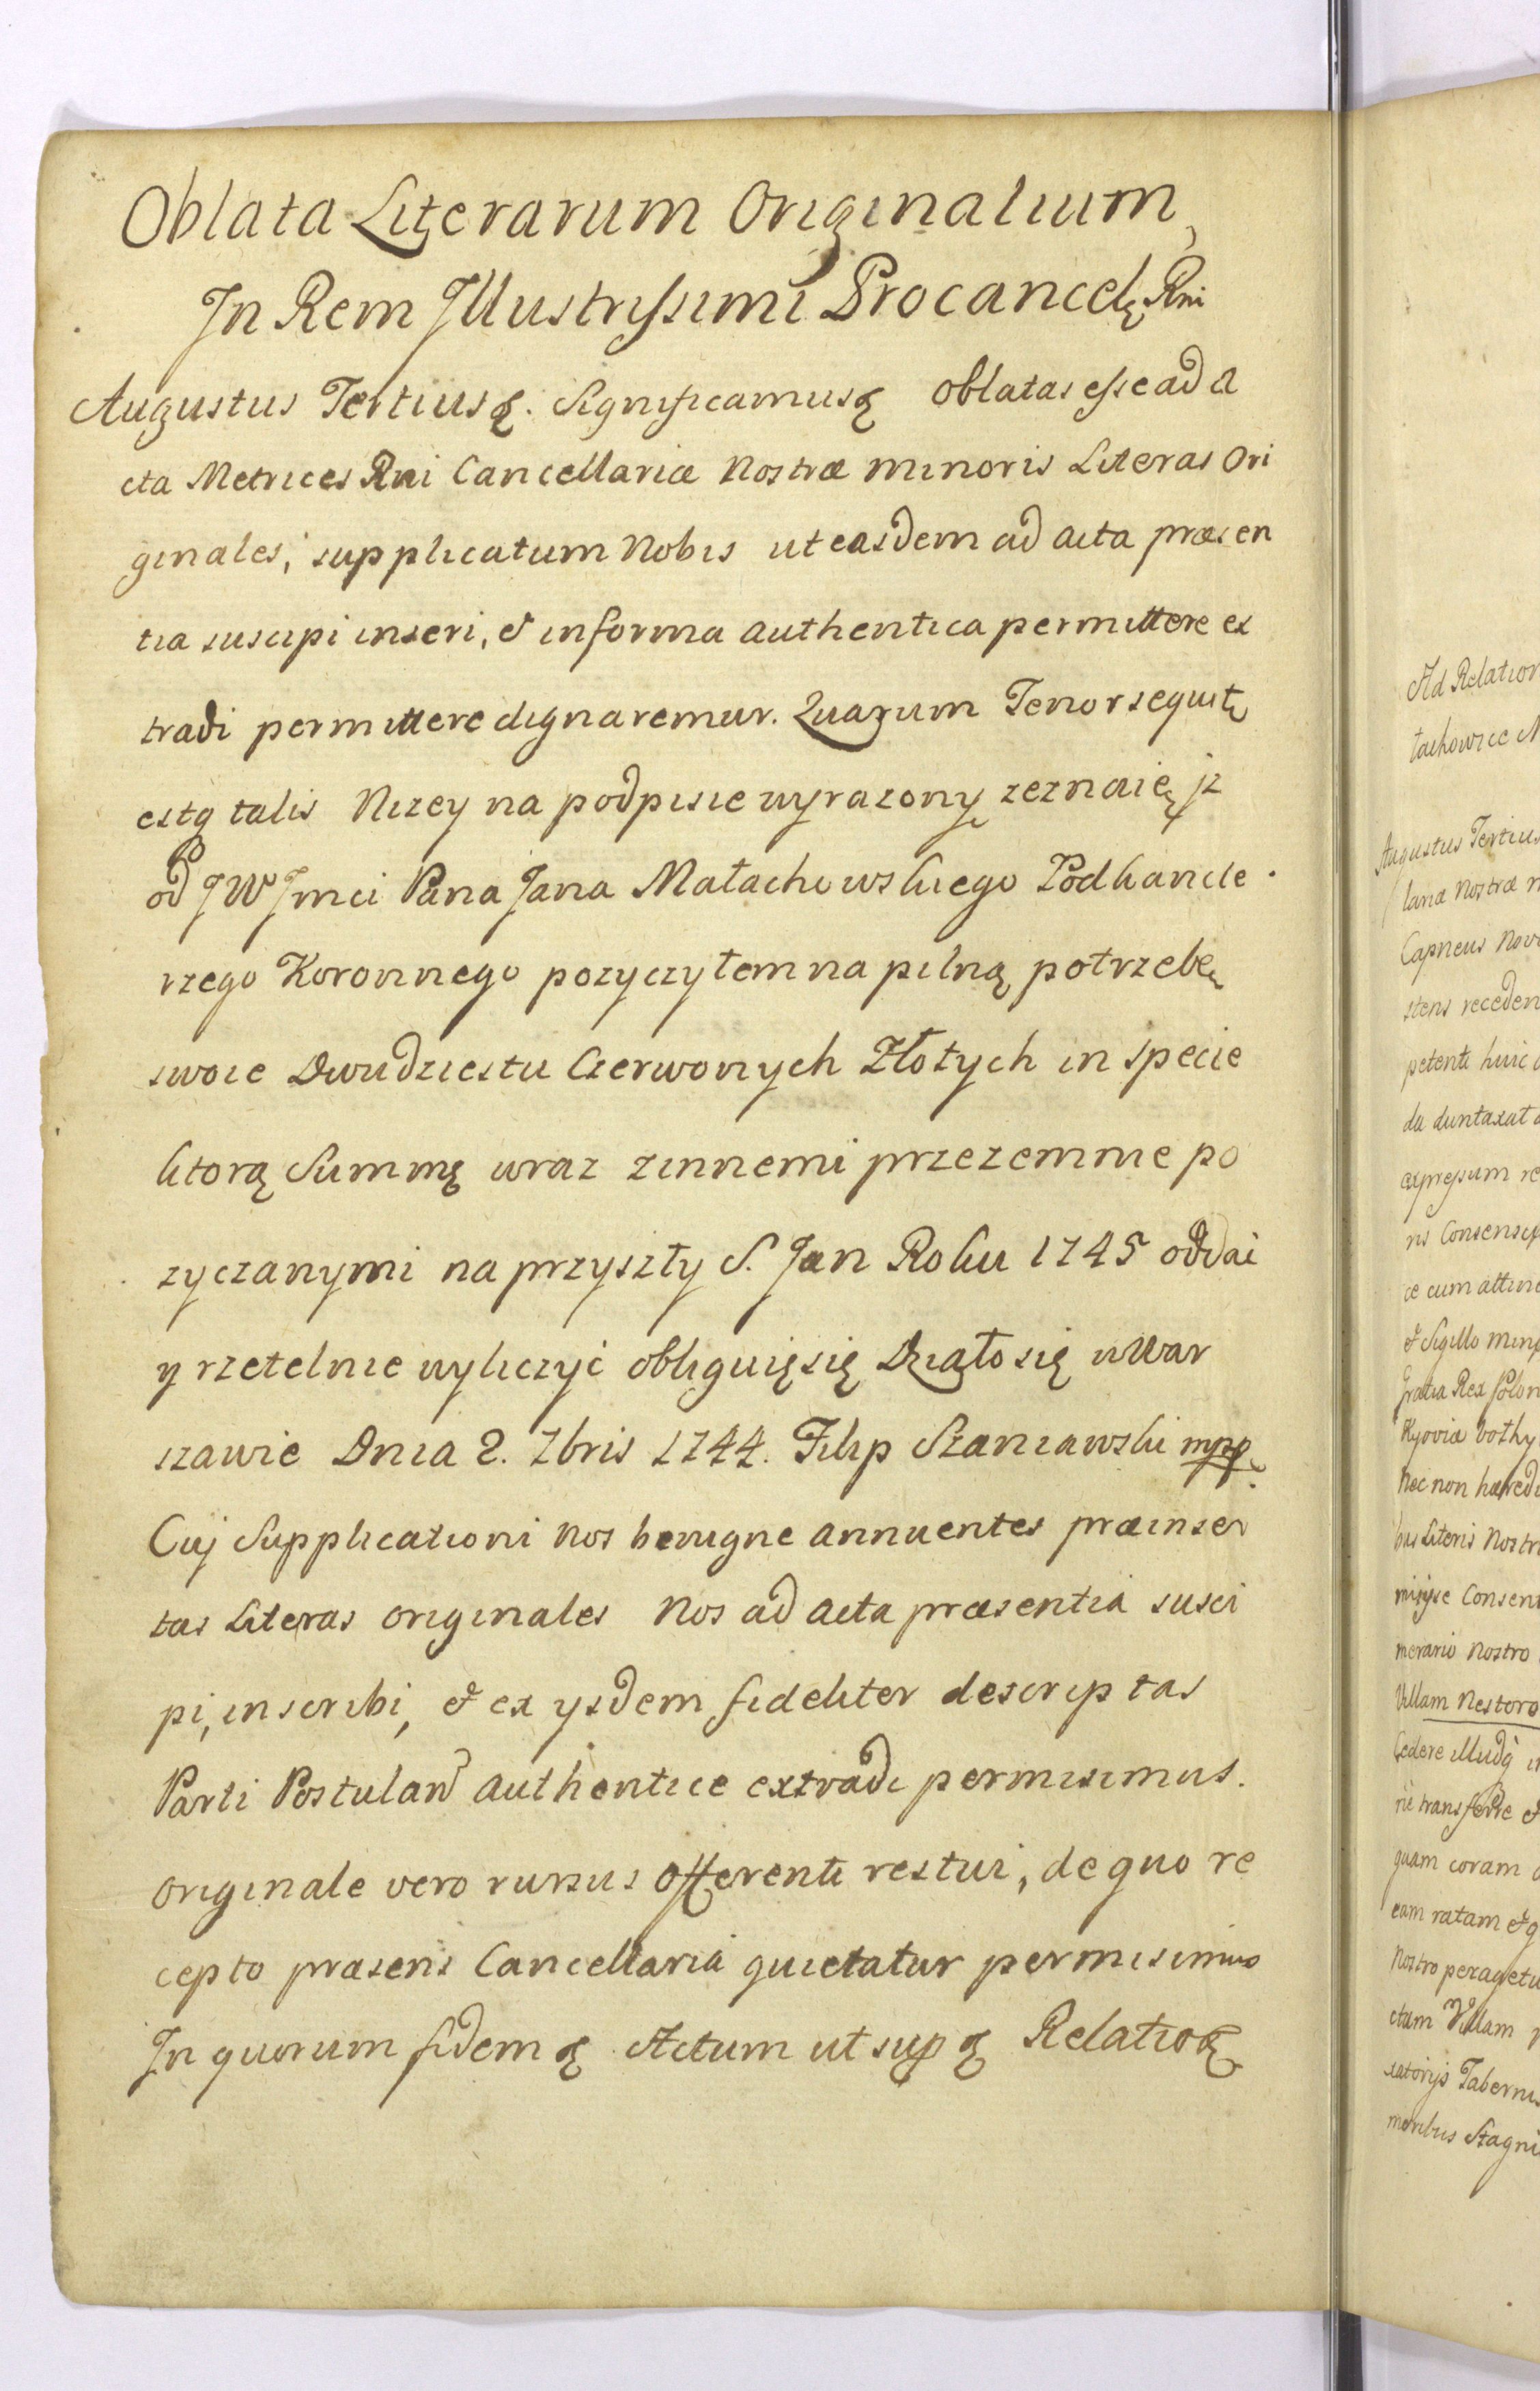 Oblata Literarum Originalium,
In Rem Illustrissimi Procancelę Rni
Augustus Tertius ę. Significamus ę oblatas esse ad A
cta Metrices Rni Cancellariæ Nostræ minoris Literas Ori
ginales, supplicatum Nobis ut easdem ad acta præsen
tia suscipi inseri, & in forma authentica permittere ex
tradi permittere dignaremur. Quarum Tenor sequitę
estq talis Nizey na podpisie wyrazony zeznaię jz
od JW Jmci Pana Jana Małachowskiego Podkancle
rzego Koronnego pozyczyłem na pilną potrzebę
swoie Dwudziestu Czerwonych Złotych in specie
ktorą Summę wraz z innemi przezemnie po
zyczanymi na przyszły S. Jan Roku 1745 oddai
y rzetelnie wyliczyć obliguię się Działo się w War
szawie Dnia 2. 7bris 1744. Filip Szaniawski mpp.
Cuj Supplicationi Nos benigne annuentes præinser
tas Literas originales Nos ad acta præsentia susci
pi, inscribi, & ex ysdem fideliter descriptas
Parti Postulan̄ authentice extradi permisimus.
Originale vero rursus Offerenti restui, de quo re
cepto præsens Cancellaria quietatur permisimus
In quorum fidem ę Actum ut sup ę Relatio ę
Ad Relation
tachowice M
Augustus Tertius
lariæ Nostræ m
Capneus Nov
stens receden
petenti huic
da duntaxat
expressum re
ris Consensy
ce cum attine
& Sigillo
Gratia Rex Polon
Kyoviæ
Nec non hæredi
bus Literis Nostr
misisse Consen
merario Nostro
Villam Nestoro
Cedere illudq
re transferre &
quam coram
eam ratam & g
Nostro peragetu
ctam Villam
xatorijs Tabernis
moribus Stagni